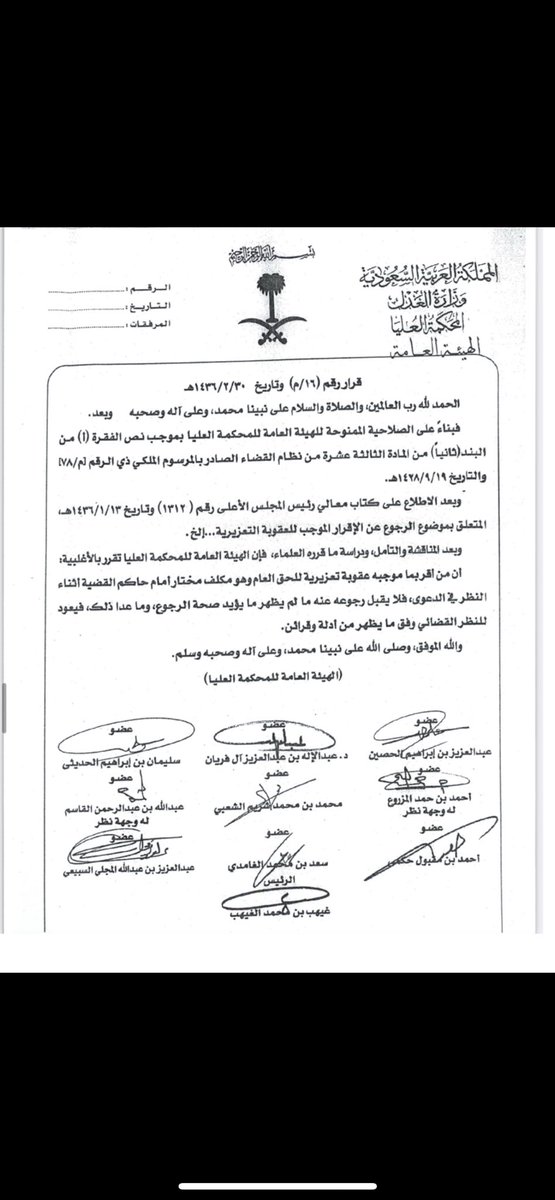 بسم الله الرحمن الرحيم
المملكة العربية السعودية
وزارة العدل
المحكمة العليا
الهيئة العامة
الرقم :
التاريخ :
المرفقات :
قرار رقم (١٦/م) وتاريخ ١٤٣٦/٢/٣٠هـ
الحمد لله رب العالمين، والصلاة والسلام على نبينا محمد، وعلى آله وصحبه وبعد.
فبناءً على الصلاحية الممنوحة للهيئة العامة للمحكمة العليا بموجب نص الفقرة (أ) من
البند(ثانياً) من المادة الثالثة عشرة من نظام القضاء الصادر بالمرسوم الملكي ذي الرقم [م/٧٨]
والتاريخ ١٤٢٨/٩/١٩هـ.
وبعد الاطلاع على كتاب معالي رئيس المجلس الأعلى رقم (١٣١٢) وتاريخ ١٤٣٦/١/١٣هـ،
المتعلق بموضوع الرجوع عن الإقرار الموجب للعقوبة التعزيرية...إلخ.
وبعد المناقشة والتأمل، ودراسة ما قرره العلماء، فإن الهيئة العامة للمحكمة العليا تقرر بالأغلبية:
أن من أقر بما موجبه عقوبة تعزيرية للحق العام وهو مكلف مختار أمام حاكم القضية أثناء
النظر في الدعوى، فلا يقبل رجوعه عنه ما لم يظهر ما يؤيد صحة الرجوع، وما عدا ذلك، فيعود
للنظر القضائي وفق ما يظهر من أدلة وقرائن.
والله الموفق، وصلى الله على نبينا محمد، وعلى آله وصحبه وسلم.
(الهيئة العامة للمحكمة العليا)
عضو عضو عضو
عبدالعزيز بن إبراهيم الحصين د. عبدالإله بن عبدالعزيز آل فريان سليمان بن إبراهيم الحديثى
عضو عضو عضو
أحمد بن حمد المزروع محمد بن محمد شريم الشعبي عبدالله بن عبدالرحمن القاسم
له وجهة نظر له وجهة نظر
عضو عضو عضو
أحمد بن مقبول حكمي سعد بن محمد الغامدي عبدالعزيز بن عبدالله المجلى السبيعى
الرئيس
غيهب بن محمد الغيهب